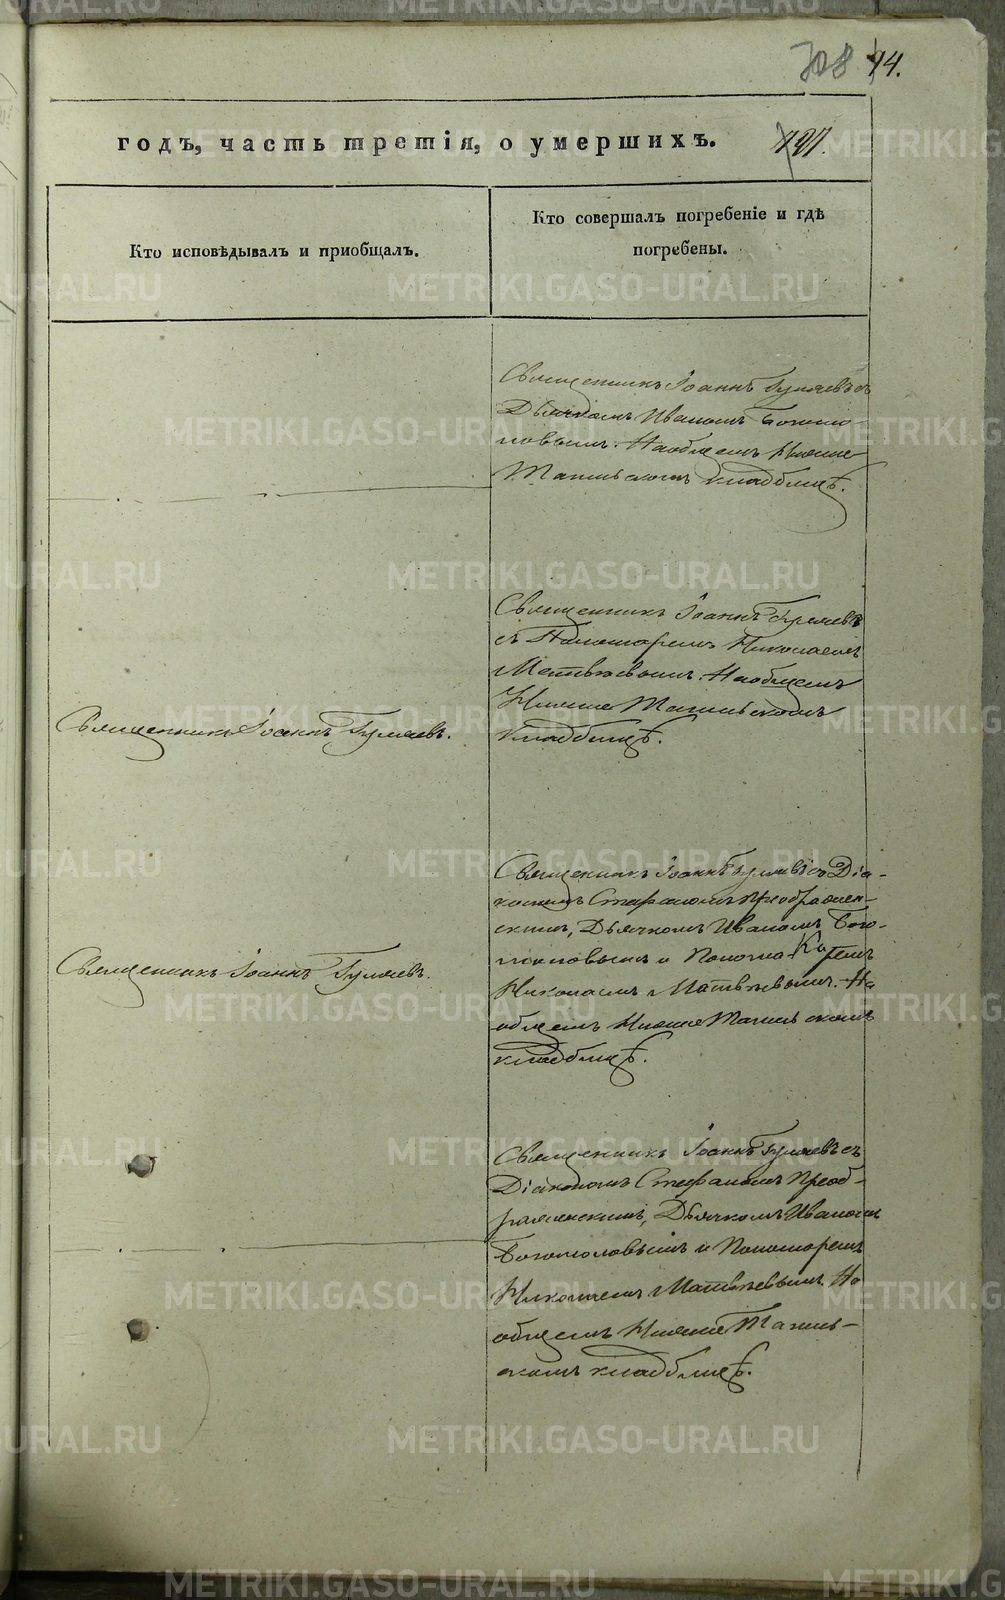 708 14.
годъ, часть третія, о умершихъ.
721.
Кто исповѣдывалъ и приобщалъ.
Кто совершалъ погребеніе и гдѣ
погребены.
Священникъ Іоаннъ Гуляевъ съ
Дьячкомъ Иваномъ Богосло-
повымъ. На общемъ Нижне
Тагильскомъ кладбищѣ.
Священникъ Іоаннъ Гуляевъ
съ Пономаремъ Николаемъ
Матвѣевымъ. На общемъ
Нижне Тагильскомъ
кладбищѣ.
Священникъ Іоаннъ Гуляевъ.
Священникъ Іоаннъ Гуляевъ съ Діа-
кономъ Стефаномъ Преображен-
скимъ, Дьячкомъ Иваномъ Бого-
словымъ и
Николаемъ Матвѣевымъ. На
общемъ Нижне Тагильскомъ
кладбищѣ.
Священникъ Іоаннъ Гуляевъ.
Священникъ Іоаннъ Гуляевъ съ
Діакономъ Стефаномъ Преоб-
раженскимъ, Дьячкомъ Иваномъ
Богословымъ и Пономаремъ
Николаемъ Матвѣевымъ. На
общемъ Нижне Тагиль-
скомъ кладбищѣ.
METRIKI.GASO-URAL.RU